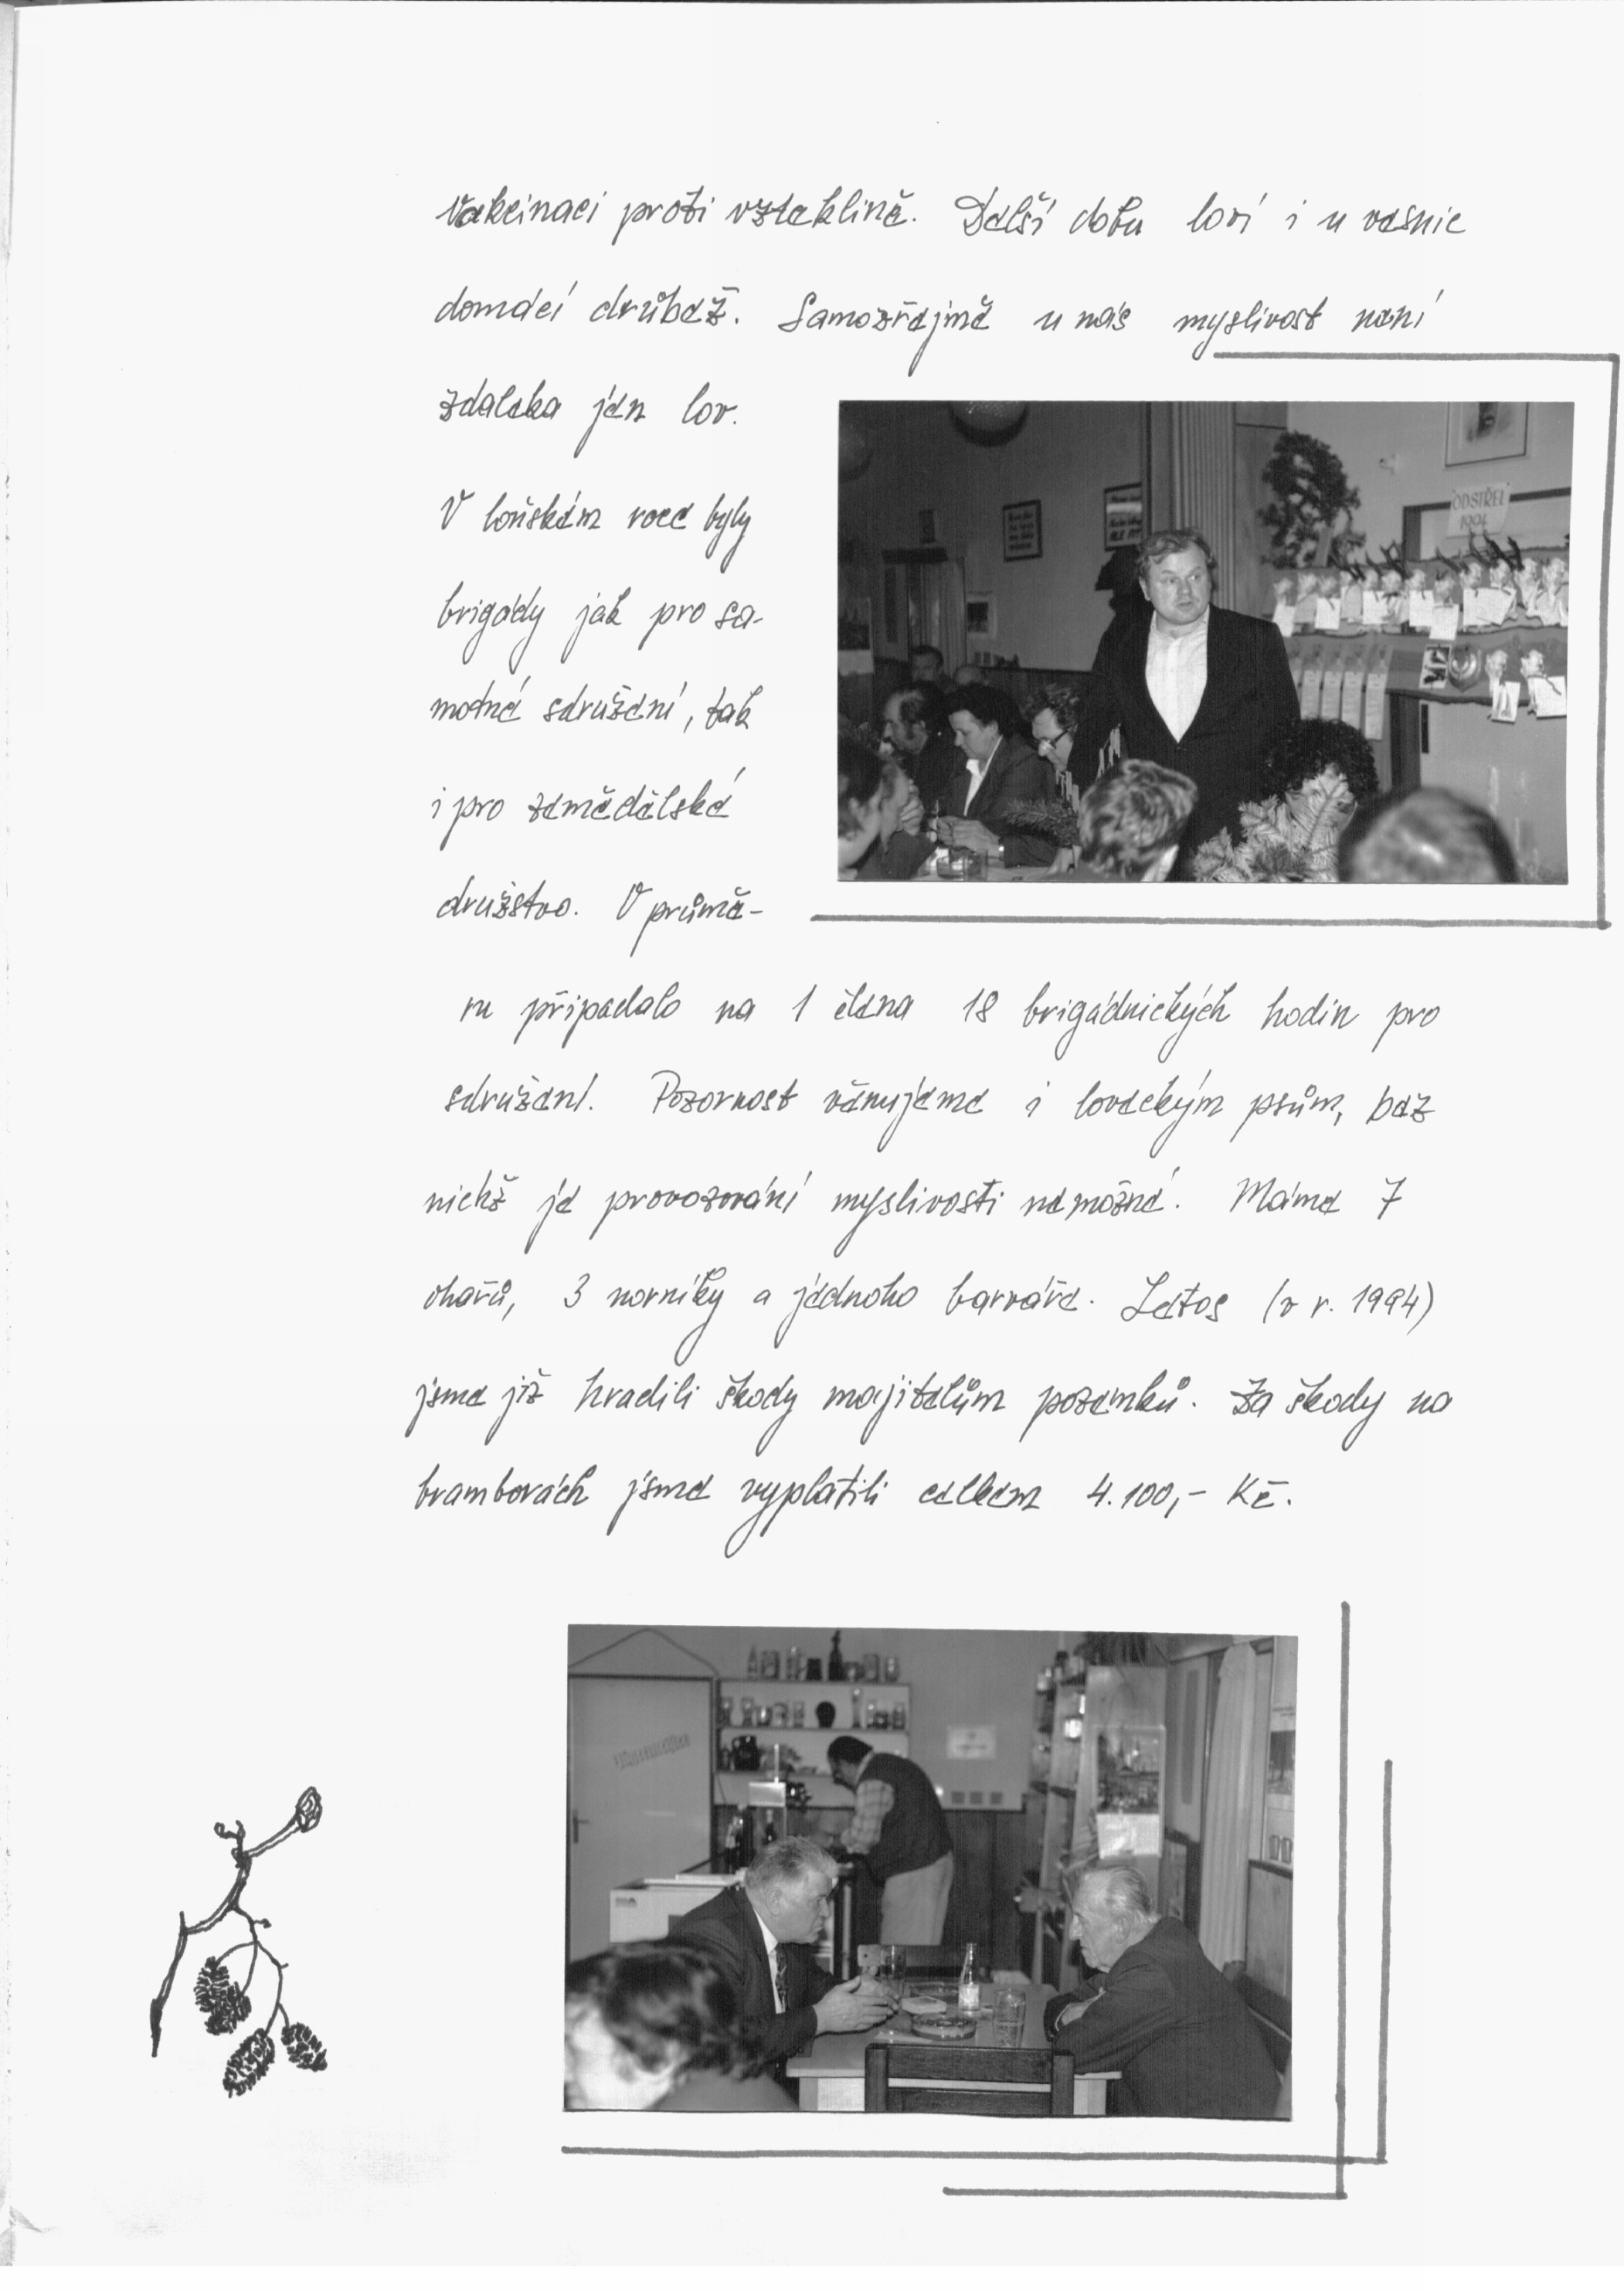 vakcinaci proti vzteklině. Další dobu loví i u vesnic
domácí drůbež. Samozřejmě u nás myslivost není
zdaleka jen lov.
V loňském roce byly
brigády jak pro sa-
motné sdružení, tak
i pro zemědělské
družstvo. V průmě-
ru připadalo na 1 člena 18 brigádnických hodin pro
sdružení. Pozornost věnujeme i loveckým psům, bez
nichž je provozování myslivosti nemožné. Máme 7
ohařů, 3 norníky a jednoho barváře. Letos (v r. 1994)
jsme již hradili škody majitelům pozemků. Za škody na
bramborách jsme vyplatili celkem 4.100,- Kč.
ODSTŘEL
1994